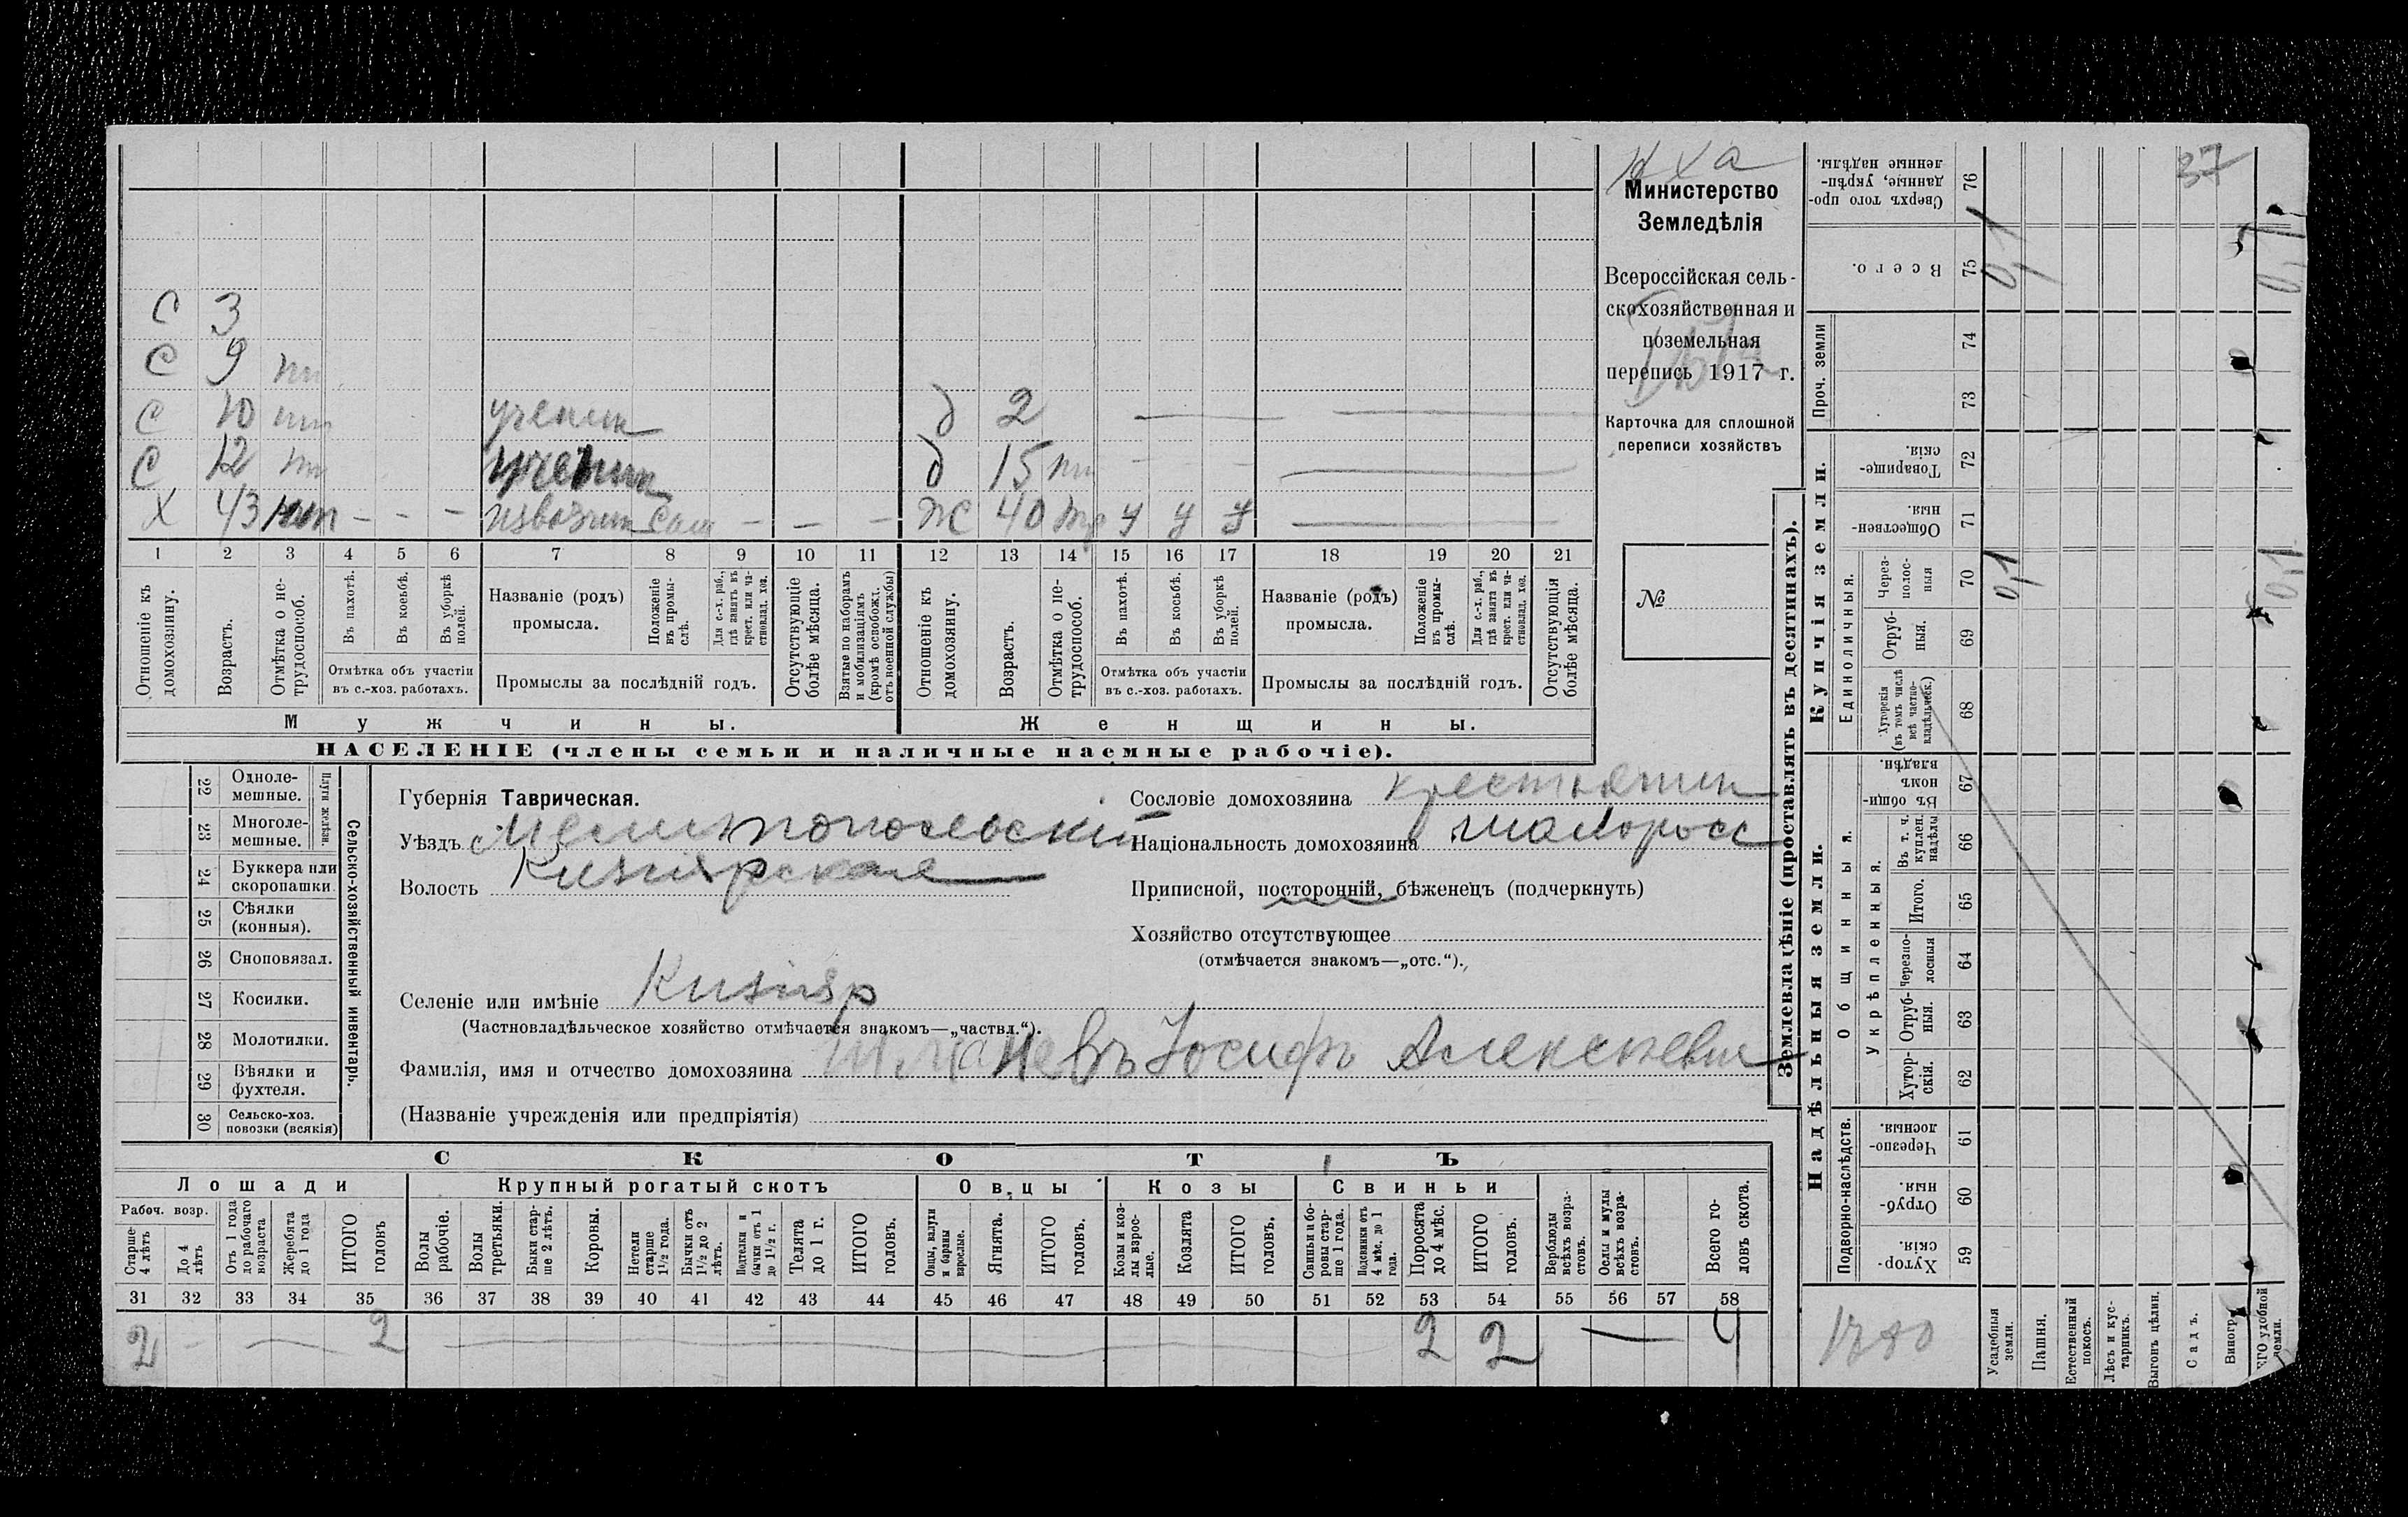 Министерство
Земледѣлія
Всероссійская сель-
скохозяйственная и
поземельная
перепись 1917 г.
Карточка для сплошной
переписи хозяйствъ
№
37
С 3
С 9
С 10 ученик
С 12 ученик
Х 43 - - - извозчик Сам - - -
д 2
д 15
Ж 40 У У У
1 2 3 4 5 6 7 8 9 10 11 12 13 14 15 16 17 18 19 20 21
Отношеніе къ домохозяину.
Возрастъ.
Отмѣтка о не-трудоспособ.
Въ пахотѣ.
Въ косьбѣ.
Въ уборкѣ полей.
Отмѣтка объ участіи въ с.-хоз. работахъ.
Названіе (родъ) промысла.
Положеніе въ промы-слѣ.
Для с.-х. раб., гдѣ занятъ въ крест. или ча-стновлад. хоз.
Промыслы за послѣдній годъ.
Отсутствующіе болѣе мѣсяца.
Взятые по наборамъ и мобилизаціямъ (кромѣ освобожд. отъ военной службы)
Отношеніе къ домохозяину.
Возрастъ.
Отмѣтка о не-трудоспособ.
Въ пахотѣ.
Въ косьбѣ.
Въ уборкѣ полей.
Отмѣтка объ участіи въ с.-хоз. работахъ.
Названіе (родъ) промысла.
Положеніе въ промы-слѣ.
Для с.-х. раб., гдѣ занята въ крест. или ча-стновлад. хоз.
Промыслы за послѣдній годъ.
Отсутствующія болѣе мѣсяца.
Мужчины.
Женщины.
НАСЕЛЕНІЕ (члены семьи и наличные наемные рабочіе).
22 Одноле-мешные.
23 Многоле-мешные.
Плуги желѣзн.
24 Буккера или скоропашки.
25 Сѣялки (конныя).
26 Сноповязал.
27 Косилки.
28 Молотилки.
29 Вѣялки и фухтеля.
30 Сельско-хоз. повозки (всякія)
Сельско-хозяйственный инвентарь.
Губернія Таврическая.
Уѣздъ Мелитопольскій
Волость Кизиярская
Селеніе или имѣніе Кизияр
(Частновладѣльческое хозяйство отмѣчается знакомъ—„частвл.“).
Фамилія, имя и отчество домохозяина Іосифъ Алексѣевич
(Названіе учрежденія или предпріятія)
Сословіе домохозяина крестьянин
Національность домохозяина малоросс
Приписной, посторонній, бѣженецъ (подчеркнуть)
Хозяйство отсутствующее
(отмѣчается знакомъ—„отс.“).
СКОТЪ
Лошади
Крупный рогатый скотъ
Овцы
Козы
Свиньи
Рабоч. возр.
Старше 4 лѣтъ
До 4 лѣтъ
Отъ 1 года до рабочаго возраста
Жеребята до 1 года
ИТОГО головъ
Волы рабочіе.
Волы третьяки.
Быки стар-ше 2 лѣтъ.
Коровы.
Нетели старше 1½ года.
Бычки отъ 1½ до 2 лѣтъ.
Подтелки и бычки отъ 1 до 1½ г.
Телята до 1 г.
ИТОГО головъ.
Овцы, валухи и бараны взрослые.
Ягнята.
ИТОГО головъ.
Козы и коз-лы взрос-лые.
Козлята
ИТОГО головъ.
Свиньи и бо-ровы стар-ше 1 года.
Подсвинки отъ 4 мѣс. до 1 года.
Поросята до 4 мѣс.
ИТОГО головъ.
Верблюды всѣхъ возра-стовъ.
Ослы и мулы всѣхъ возра-стовъ.
Всего го-ловъ скота.
31 32 33 34 35 36 37 38 39 40 41 42 43 44 45 46 47 48 49 50 51 52 53 54 55 56 57 58
2 - 2 2 2 — 4
Землевладѣніе (проставлять въ десятинахъ).
Надѣльныя земли.
Купчія земли.
Проч. земли
Подворно-наслѣдств.
Общинныя.
Укрѣпленныя.
Единоличныя.
Сверхъ того про-данные, укрѣп-ленные надѣлы. 76
Всего. 75 0,1
74
73
Товарище-скія. 72
Обществен-ныя. 71
Через-полос-ныя 70 0,1
Отруб-ныя. 69
Хуторскія (въ томъ числѣ всѣ частно-владѣльческ.) 68
Въ общи-номъ владѣн. 67
Въ т. ч. куплен. надѣлы 66
Итого. 65
Черезпо-лосныя 64
Отруб-ныя. 63
Хутор-скія. 62
Черезпо-лосныя. 61
Отруб-ныя. 60
Хутор-скія. 59
Усадебныя земли.
Пашня.
Естественный покосъ.
Лѣсъ и кус-тарникъ.
Выгонъ цѣлин.
Садъ.
Виногр
ГО удобной земли.
0,1
0,1